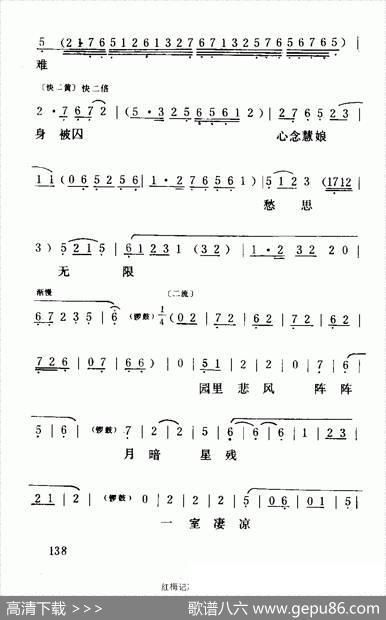 5 (21·7 6 5 1 2 6 1 3 2 7 6 7 1 3 2 5 7 6 5 6 7 6 5) |
难
〔快二簧〕快二倍
2·7 6 7 2 | (5·3 2 5 6 5 6 1 2) | 2 7 6 5 2 3 |
身 被囚 心念慧娘
1 1 | (0 6 5 2 5 6 | 1·2 7 6 5 6 1) | 5 1 2 3 (1 7 1 2 |
愁 思
3) 5 2 1 5 | 6 1 2 3 1 (3 2) | 1·2 3 2 2 0 |
无 限
渐慢 〔二流〕
6 7 2 3 5 | 6 (锣鼓) 1/4 (0 2 | 7 2 | 6 2 | 7 2 | 6 2 |
7 2 6 | 0 7 | 6 6) | 0 | 5 1 | 2 | 2 | 0 | 7 | 6 |
园里 悲 风 阵 阵
5 | 6 | (锣鼓) 7 | 2 | 2 | 5 | 6 | 6 | 6 | 1 | 2 3 |
月 暗 星 残
2 1 | 2 | (锣鼓) 0 2 | 2 | 2 | 5 | 0 6 | 0 1 | 5 | 5 |
一 室 凄 凉
138
红梅记
高清下载 >>> 歌谱八六 www.gepu86.com